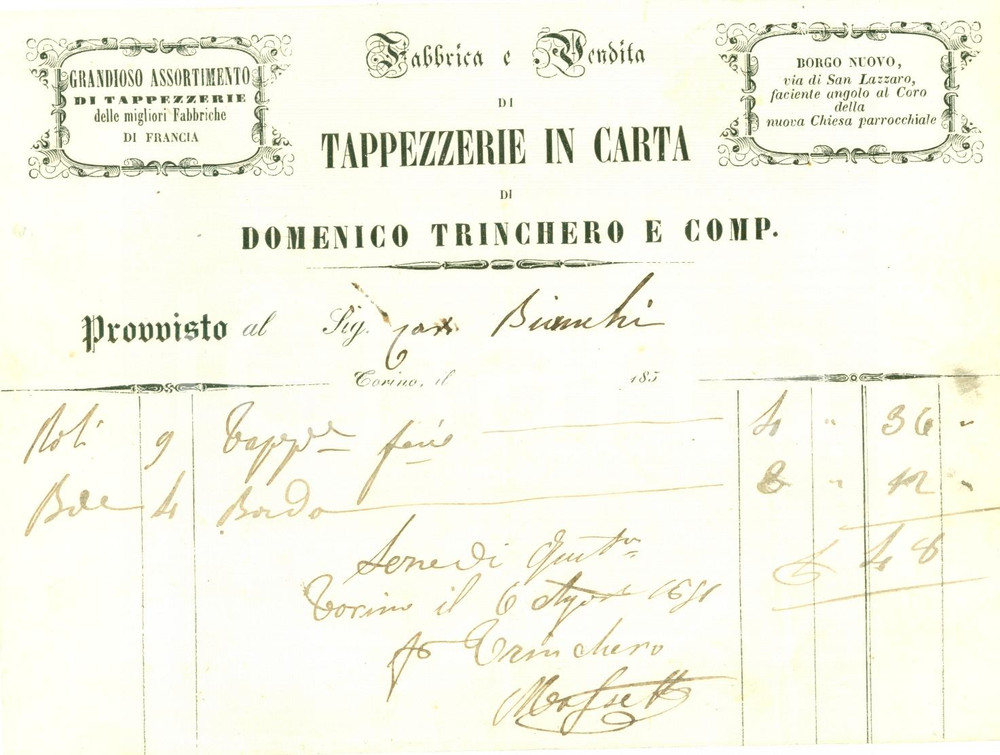 GRANDIOSO ASSORTIMENTO
DI TAPPEZZERIE
delle migliori Fabbriche
DI FRANCIA
Fabbrica e Vendita
DI
TAPPEZZERIE IN CARTA
DI
DOMENICO TRINCHERO E COMP.
BORGO NUOVO,
via di San Lazzaro,
faciente angolo al Coro
della
nuova Chiesa parrocchiale
Provvisto al Sig. Bianchi
Torino, il 185
9 4 " 36 "
4 Bordo " 12 "
48
Torino il 6
Trinchero